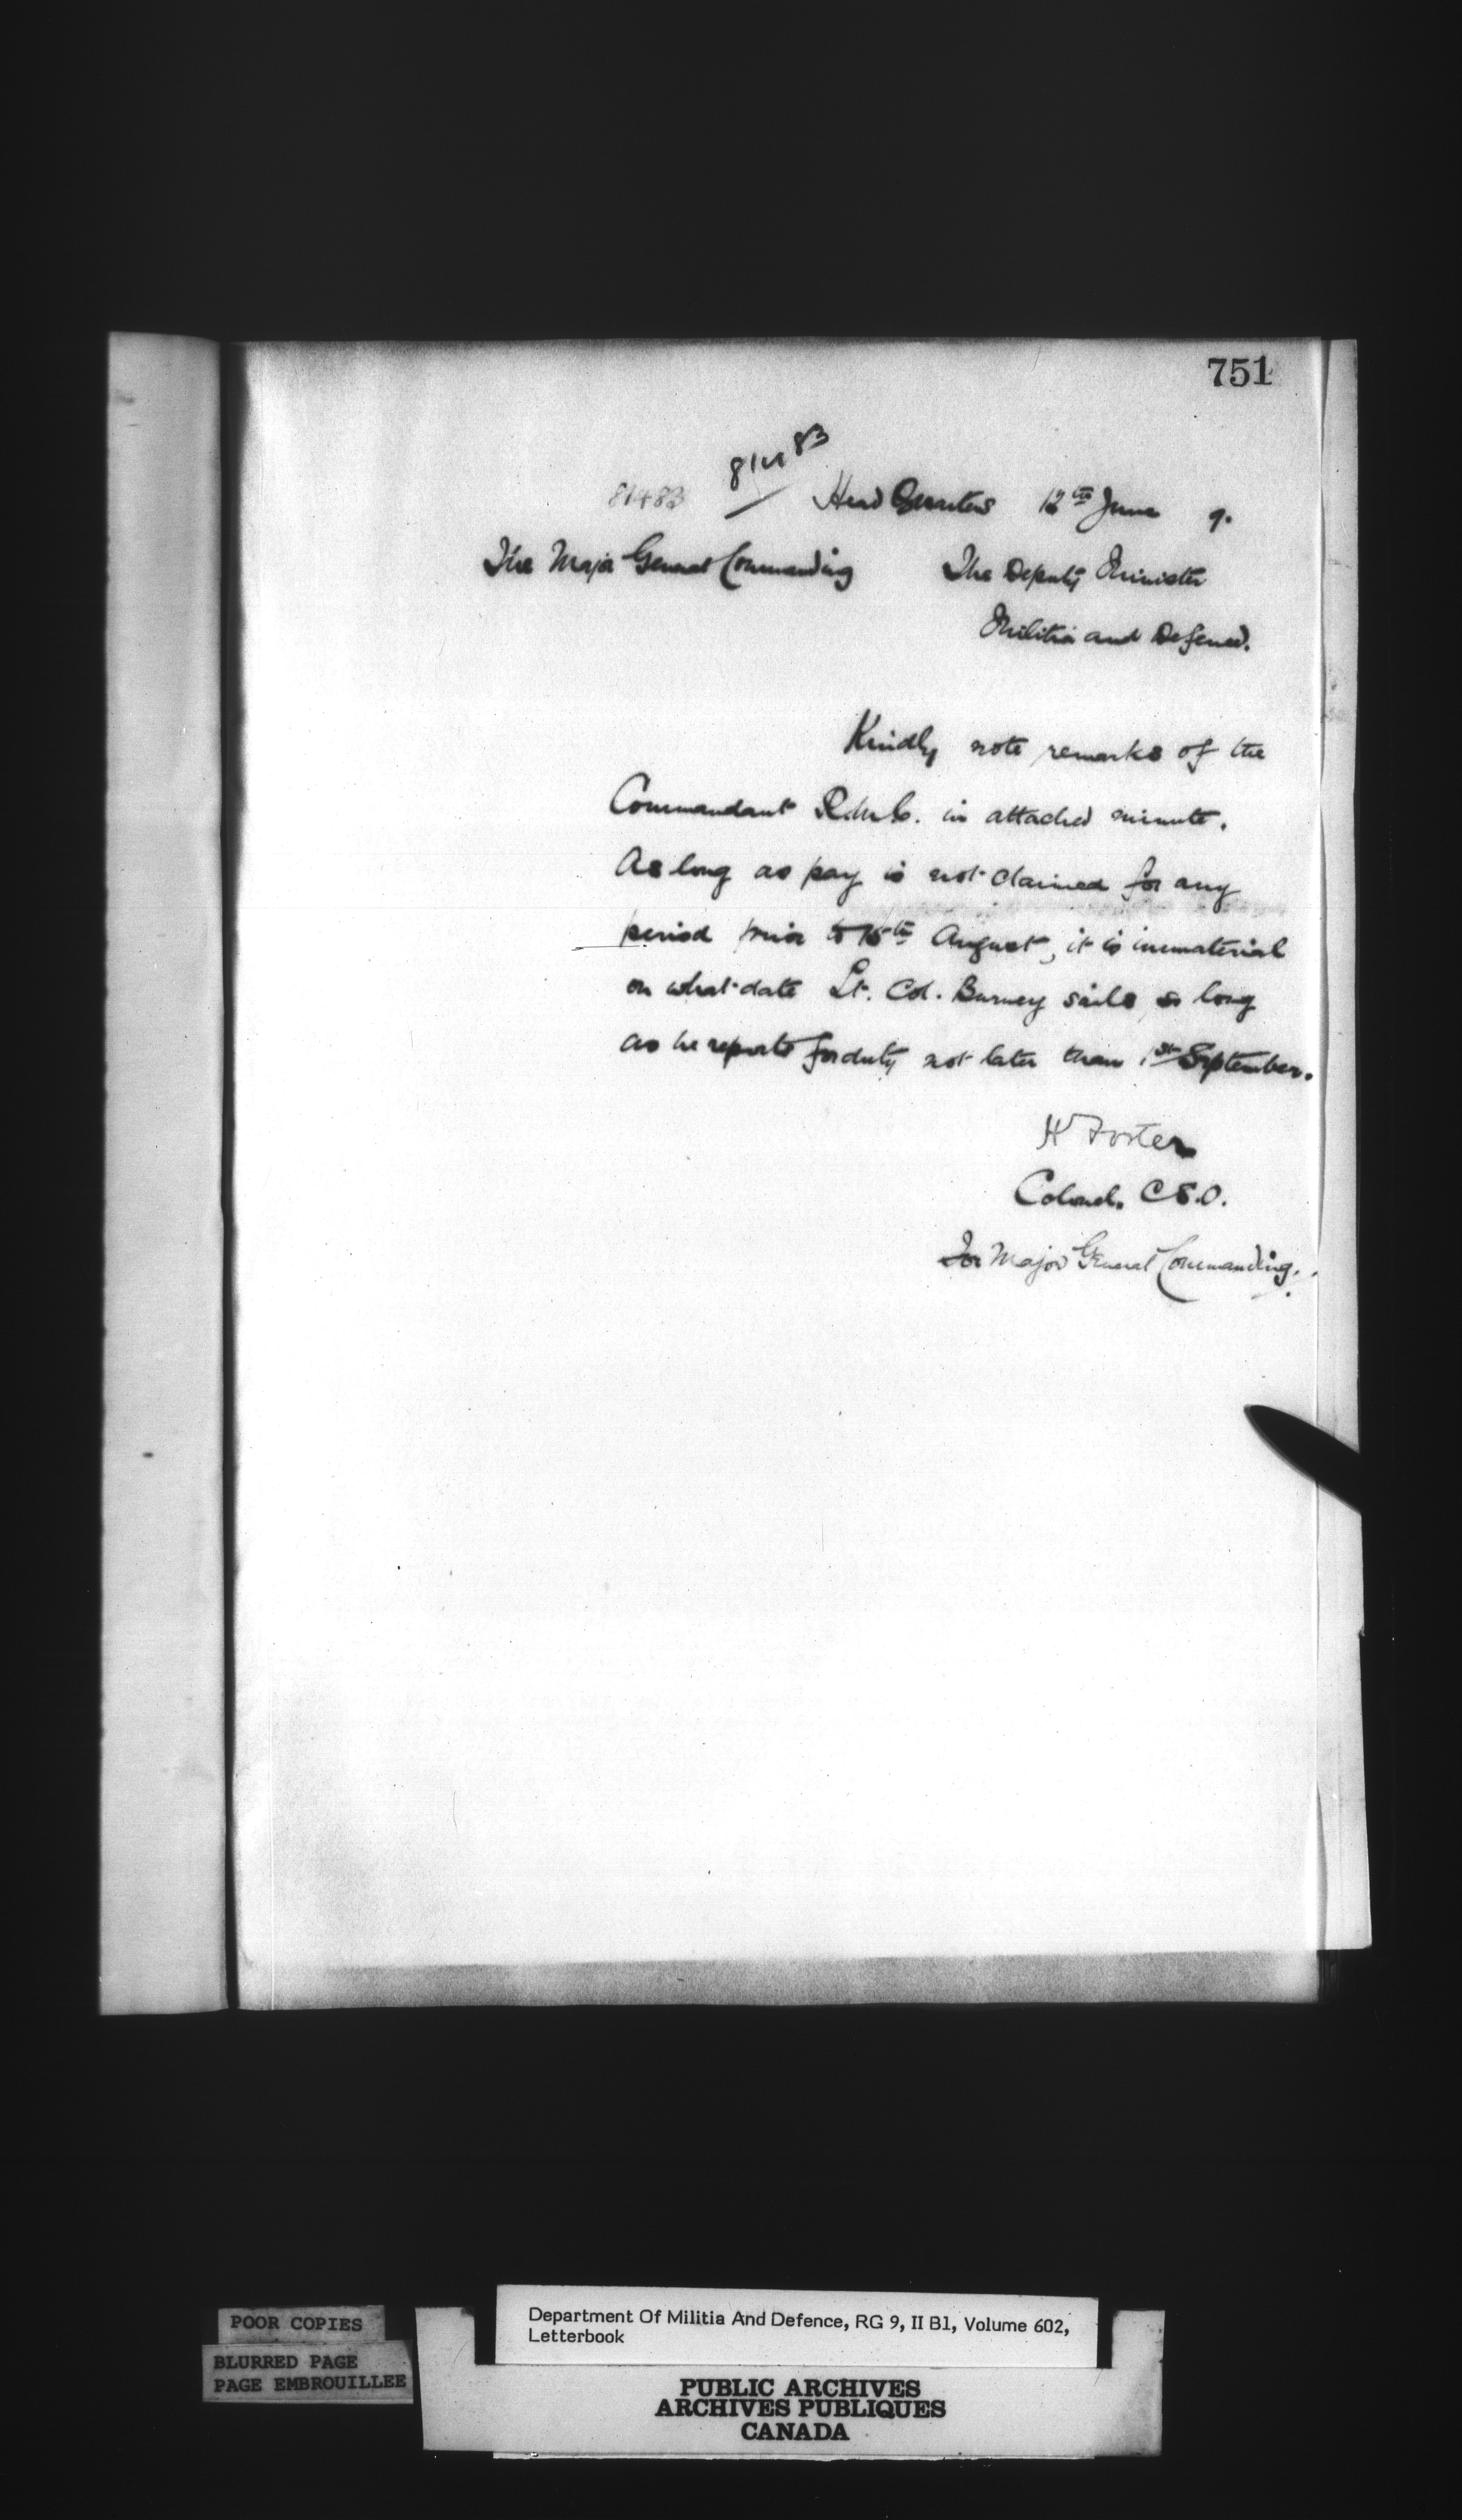 751
81483
81483
Head Quarters 12th June 9.
The Major General Commanding The Deputy Minister
Militia and Defence.
Kindly note remarks of the
Commandant R.M.C. in attached minute.
As long as pay is not claimed for any
period prior to 15th August, it is immaterial
on what date Lt. Col. Burney sails so long
as he reports for duty not later than 1st September.
H Foster
Colonel. C.S.O.
For Major General Commanding.
POOR COPIES
BLURRED PAGE
PAGE EMBROUILLEE
Department Of Militia And Defence, RG 9, II B1, Volume 602,
Letterbook
PUBLIC ARCHIVES
ARCHIVES PUBLIQUES
CANADA